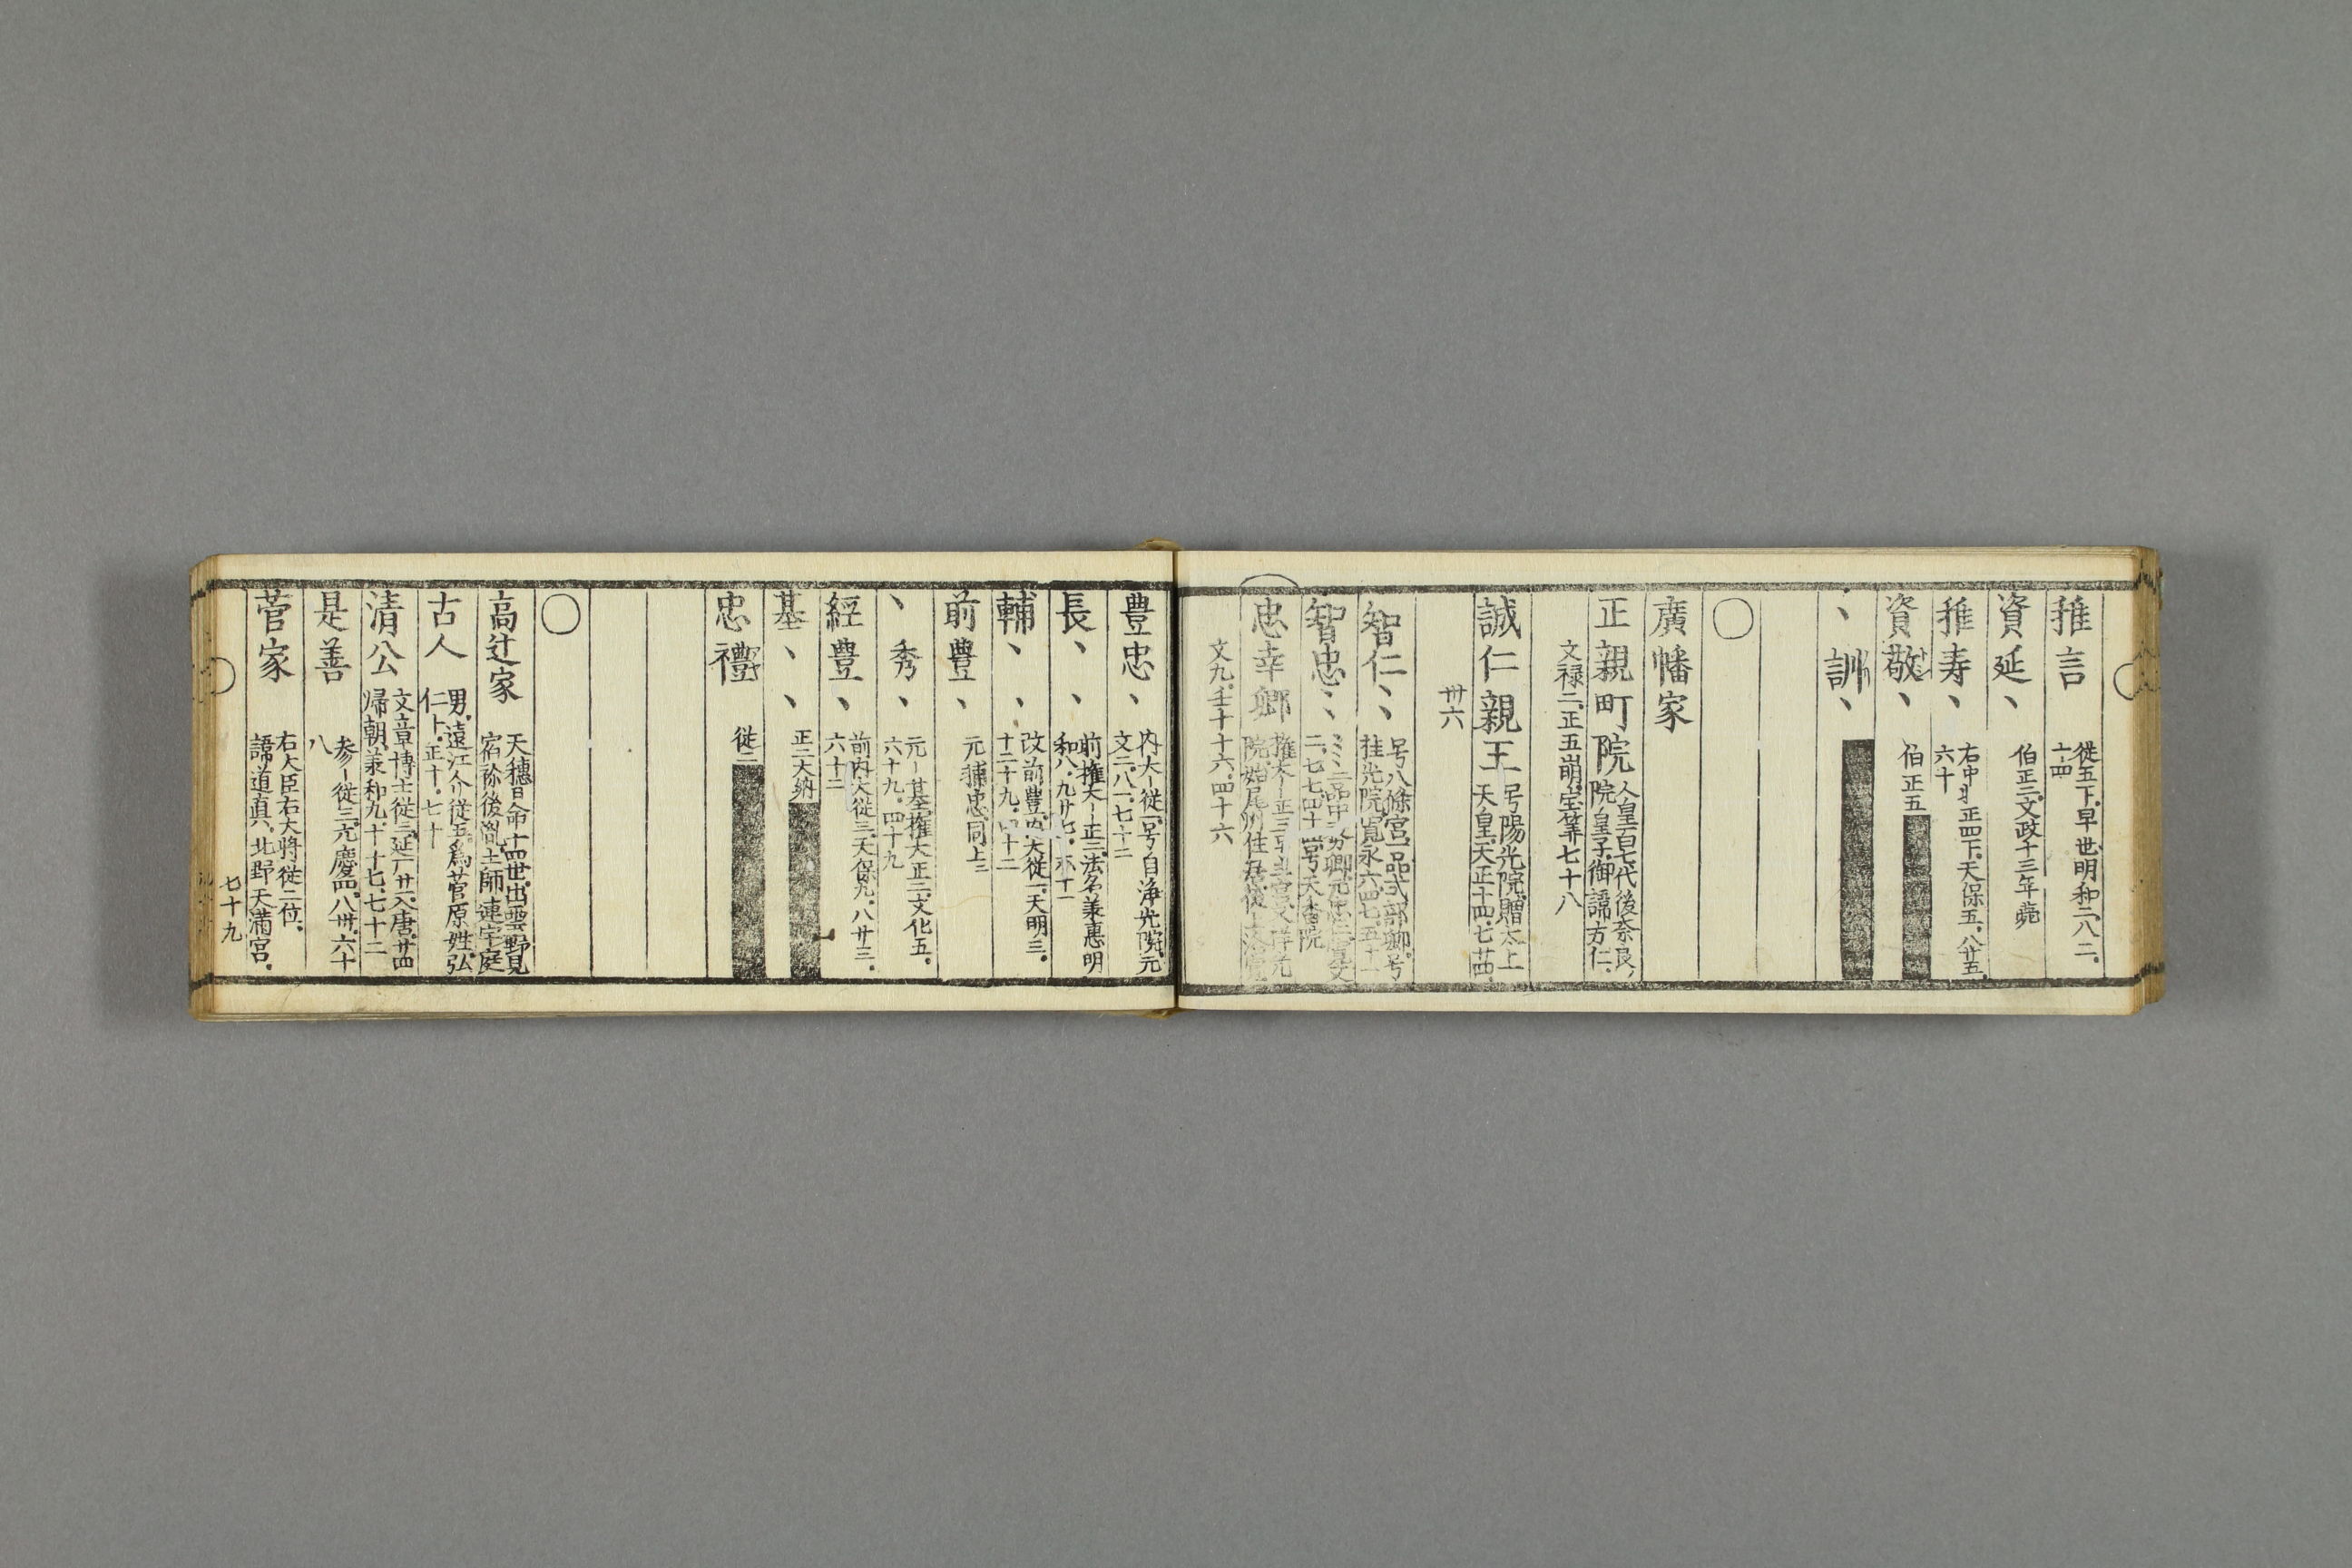 雅言 従五下、早世、明和二、八二、
十四
資延、 伯正二、文政十三年薨
雅寿、 右中 正四下、天保五、八廿五、
六十
資敬、 伯正五
、訓、
〇
廣幡家
正親町院 人皇百七代後奈良
院皇子、御諱方仁、
文禄二、正五崩、宝算七十八
誠仁親王 号陽光院、贈太上
天皇、天正十四、七廿四、
卅六
智仁、、 号八條宮、一品式部卿、号
桂光院、寛永六、四七、五十一
智忠、、
二、七七、四十四、号天香院
忠幸卿
文九、壬十十六、四十六
豊忠、 内大一従一、号自浄光院、元
文二、八一、七十二
長、、 前権大一正三、法名兼恵、明
和八、九廿七、六十一
輔、、 改前豊、内大従一、天明三、
十二十九、四十二
前豊、 元輔忠、同上
、秀、 元一基、権大正二、文化五、
六十九、四十九
経豊、 前内大従三、天保九、八廿三、
六十二
基、、 正二大納
忠禮 従二
〇
高辻家 天穂日命十四世、出雲野見
宿祢後胤、土師連宇庭
古人 男、遠江介従五、為菅原姓、弘
仁十、正十、七十
清公 文章博士従三、延厂廿二入唐、廿四
帰朝、兼和九、十十七、七十二
是善 参一従三、元慶四、八卅、六十
八
菅家 右大臣右大将従二位、
諱道真、北野天満宮、
七十九